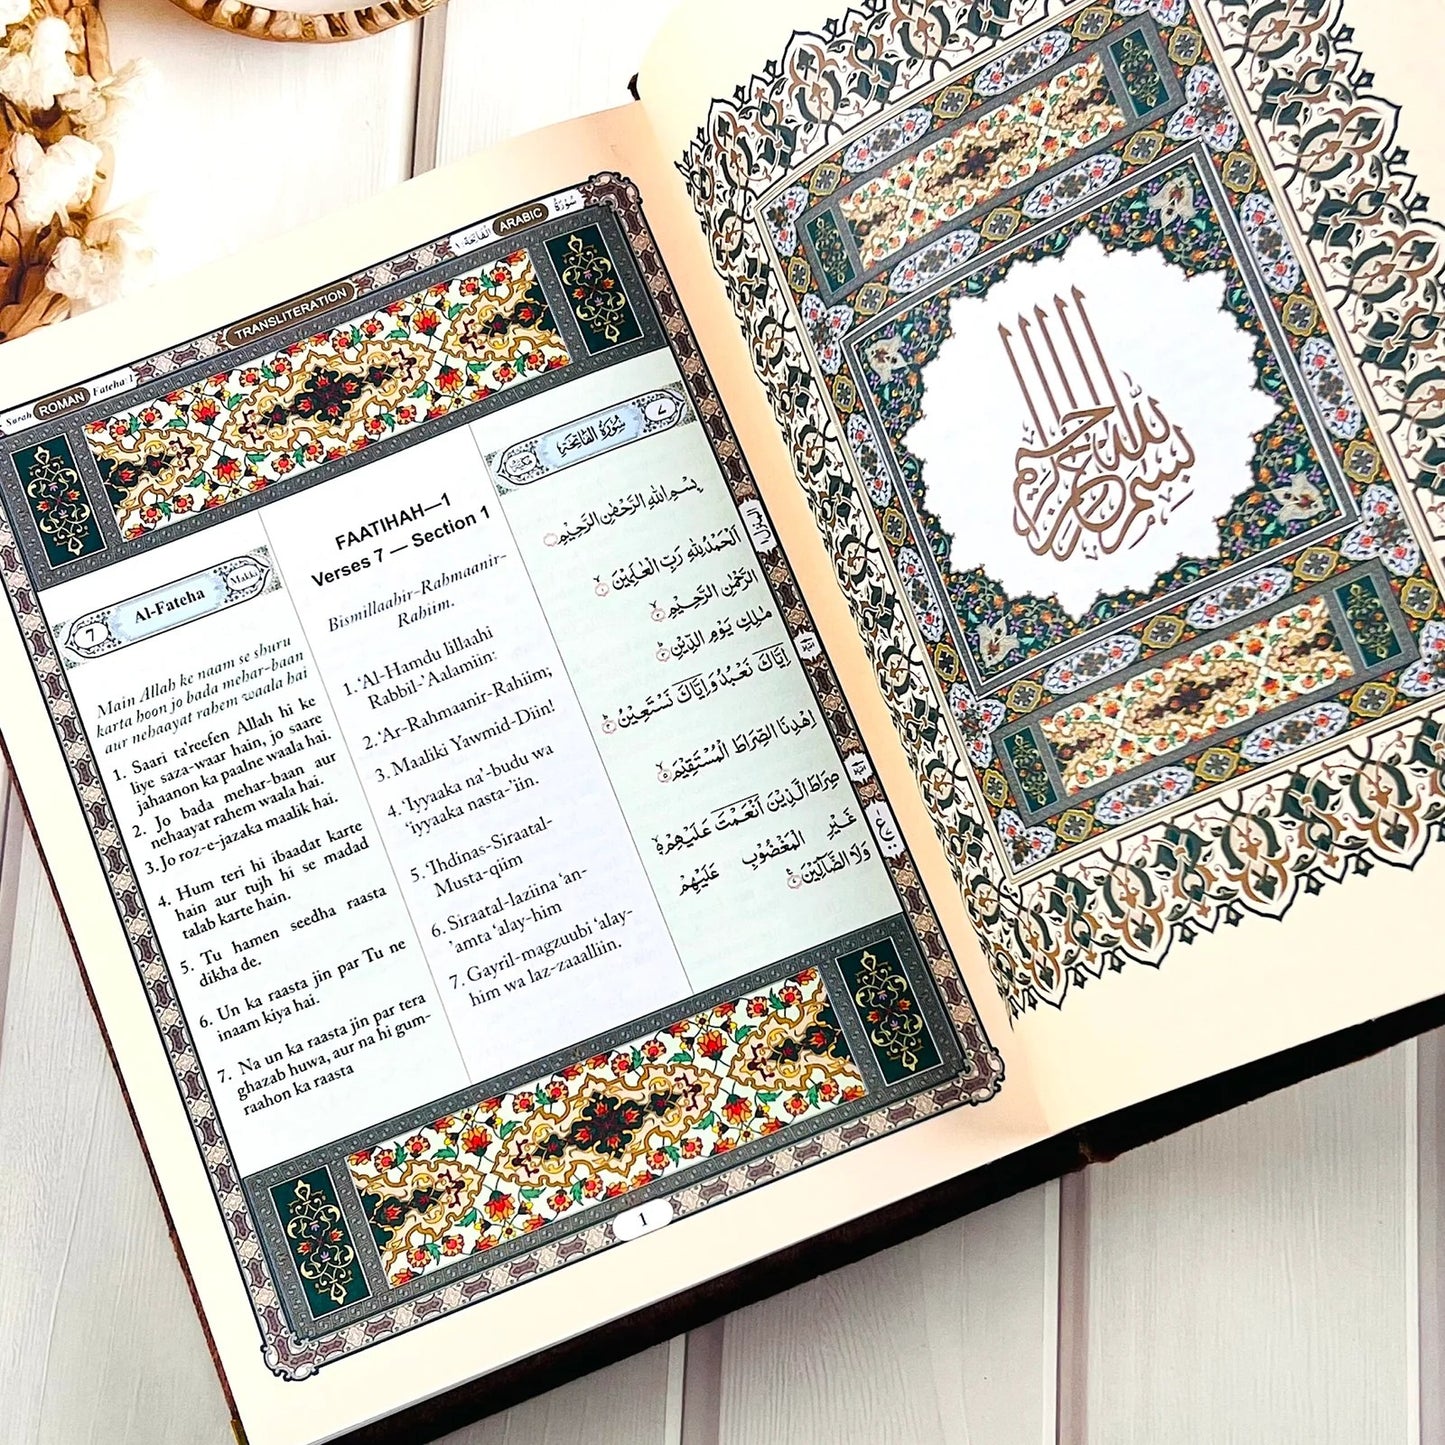 Surah ROMAN Fateha 1
TRANSLITERATION
الْفَاتِحَة ١ ARABIC سُوْرَةُ
7 Al-Fateha Makki
Main Allah ke naam se shuru
karta hoon jo bada mehar-baan
aur nehaayat rahem waala hai
1. Saari ta'reefen Allah hi ke
liye saza-waar hain, jo saare
jahaanon ka paalne waala hai.
2. Jo bada mehar-baan aur
nehaayat rahem waala hai.
3. Jo roz-e-jazaka maalik hai.
4. Hum teri hi ibaadat karte
hain aur tujh hi se madad
talab karte hain.
5. Tu hamen seedha raasta
dikha de.
6. Un ka raasta jin par Tu ne
inaam kiya hai.
7. Na un ka raasta jin par tera
ghazab huwa, aur na hi gum-
raahon ka raasta
FAATIHAH—1
Verses 7 — Section 1
Bismillaahir-Rahmaanir-
Rahiim.
1. ‘Al-Hamdu lillaahi
Rabbil-‘Aalamiin:
2. ‘Ar-Rahmaanir-Rahiim;
3. Maaliki Yawmid-Diin!
4. ‘Iyyaaka na’-budu wa
‘iyyaaka nasta-’iin.
5. ‘Ihdinas-Siraatal-
Musta-qiim
6. Siraatal-laziina ‘an-
’amta ‘alay-him
7. Gayril-magzuubi ‘alay-
him wa laz-zaaalliin.
٧ سُوْرَةُ الْفَاتِحَةِ
بِسْمِ اللهِ الرَّحْمٰنِ الرَّحِيْمِ
اَلْحَمْدُ لِلّٰهِ رَبِّ الْعٰلَمِيْنَ
الرَّحْمٰنِ الرَّحِيْمِ
مٰلِكِ يَوْمِ الدِّيْنِ
اِيَّاكَ نَعْبُدُ وَاِيَّاكَ نَسْتَعِيْنُ
اِهْدِنَا الصِّرَاطَ الْمُسْتَقِيْمَ
صِرَاطَ الَّذِيْنَ اَنْعَمْتَ عَلَيْهِمْ
غَيْرِ الْمَغْضُوْبِ عَلَيْهِمْ
وَلَا الضَّآلِّيْنَ
1
بِسْمِ اللهِ الرَّحْمٰنِ الرَّحِيْمِ